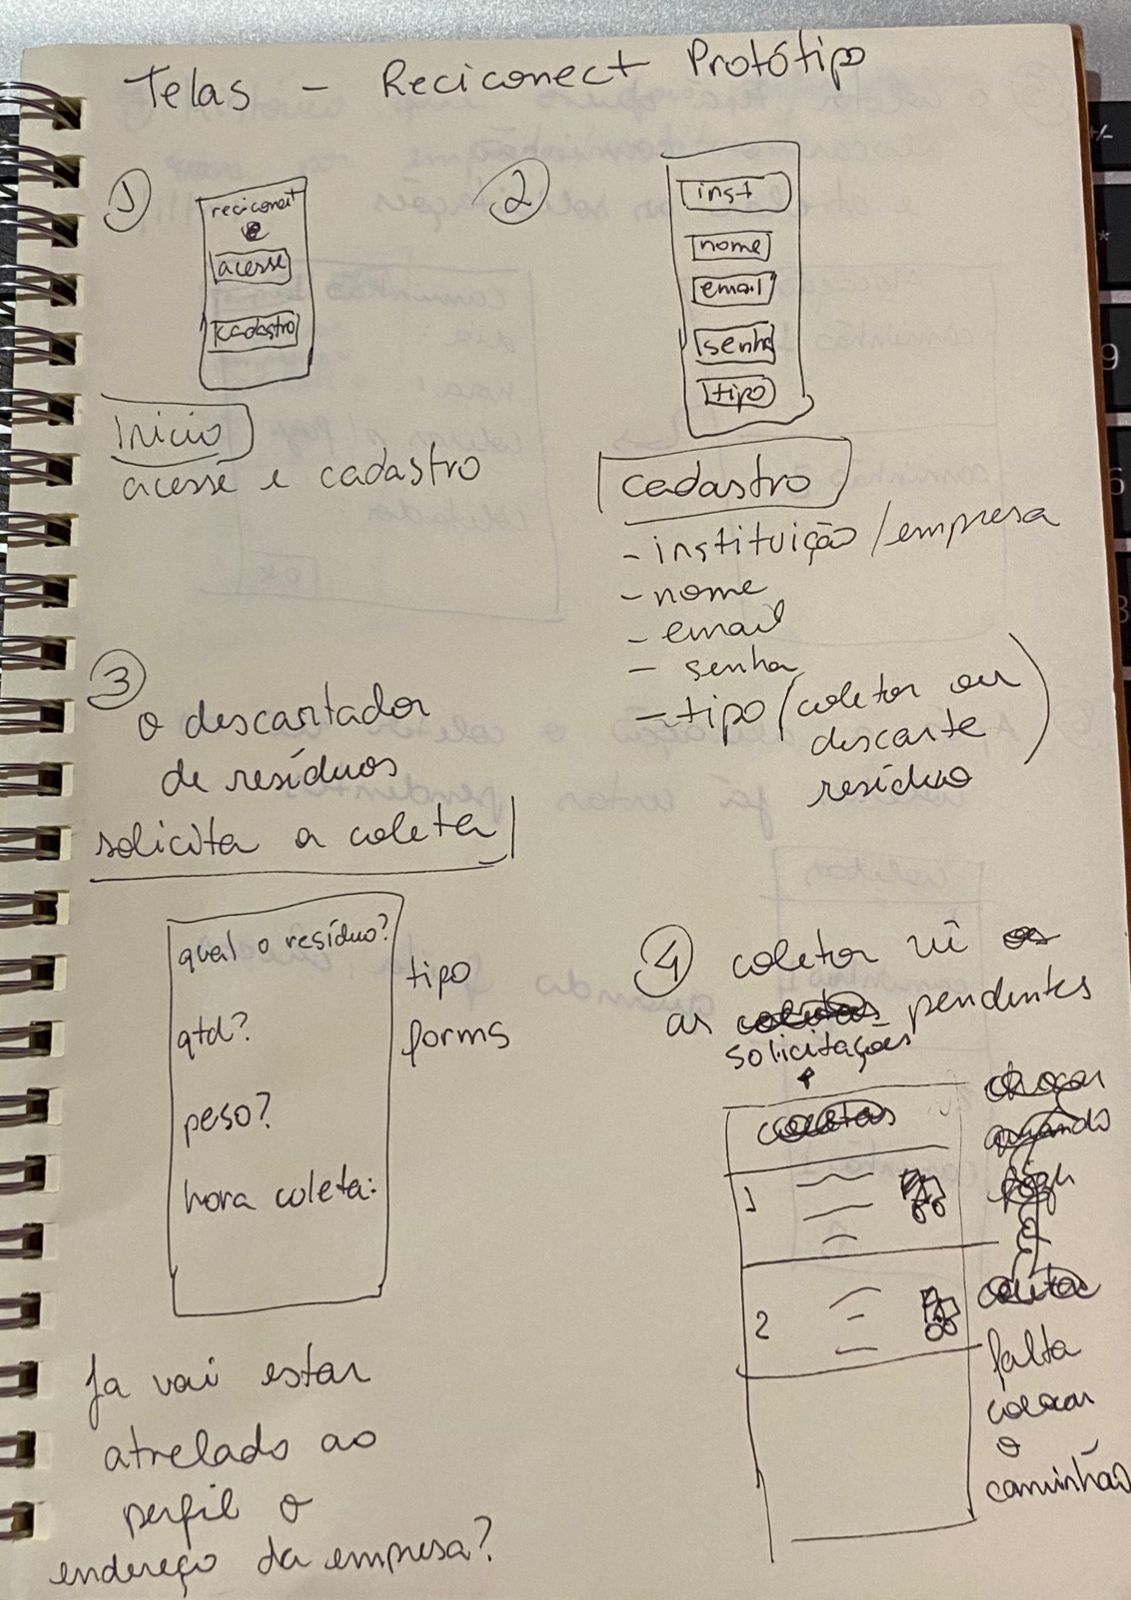 Telas - Reciconect Protótipo
1
reciconect
acesse
cadastro
Início
acesse e cadastro
2
inst
nome
email
senha
tipo
cadastro
- instituição / empresa
- nome
- email
- senha
- tipo (coletor ou
descarte
resíduo)
3
o descartador
de resíduos
solicita a coleta
qual o resíduo?
qtd?
peso?
hora coleta:
tipo
forms
Ja vai estar
atrelado ao
perfil o
endereço da empresa?
4 coletor vê os
as coletas pendentes
solicitações
coletas
1
2
falta
colocar
o
caminhão